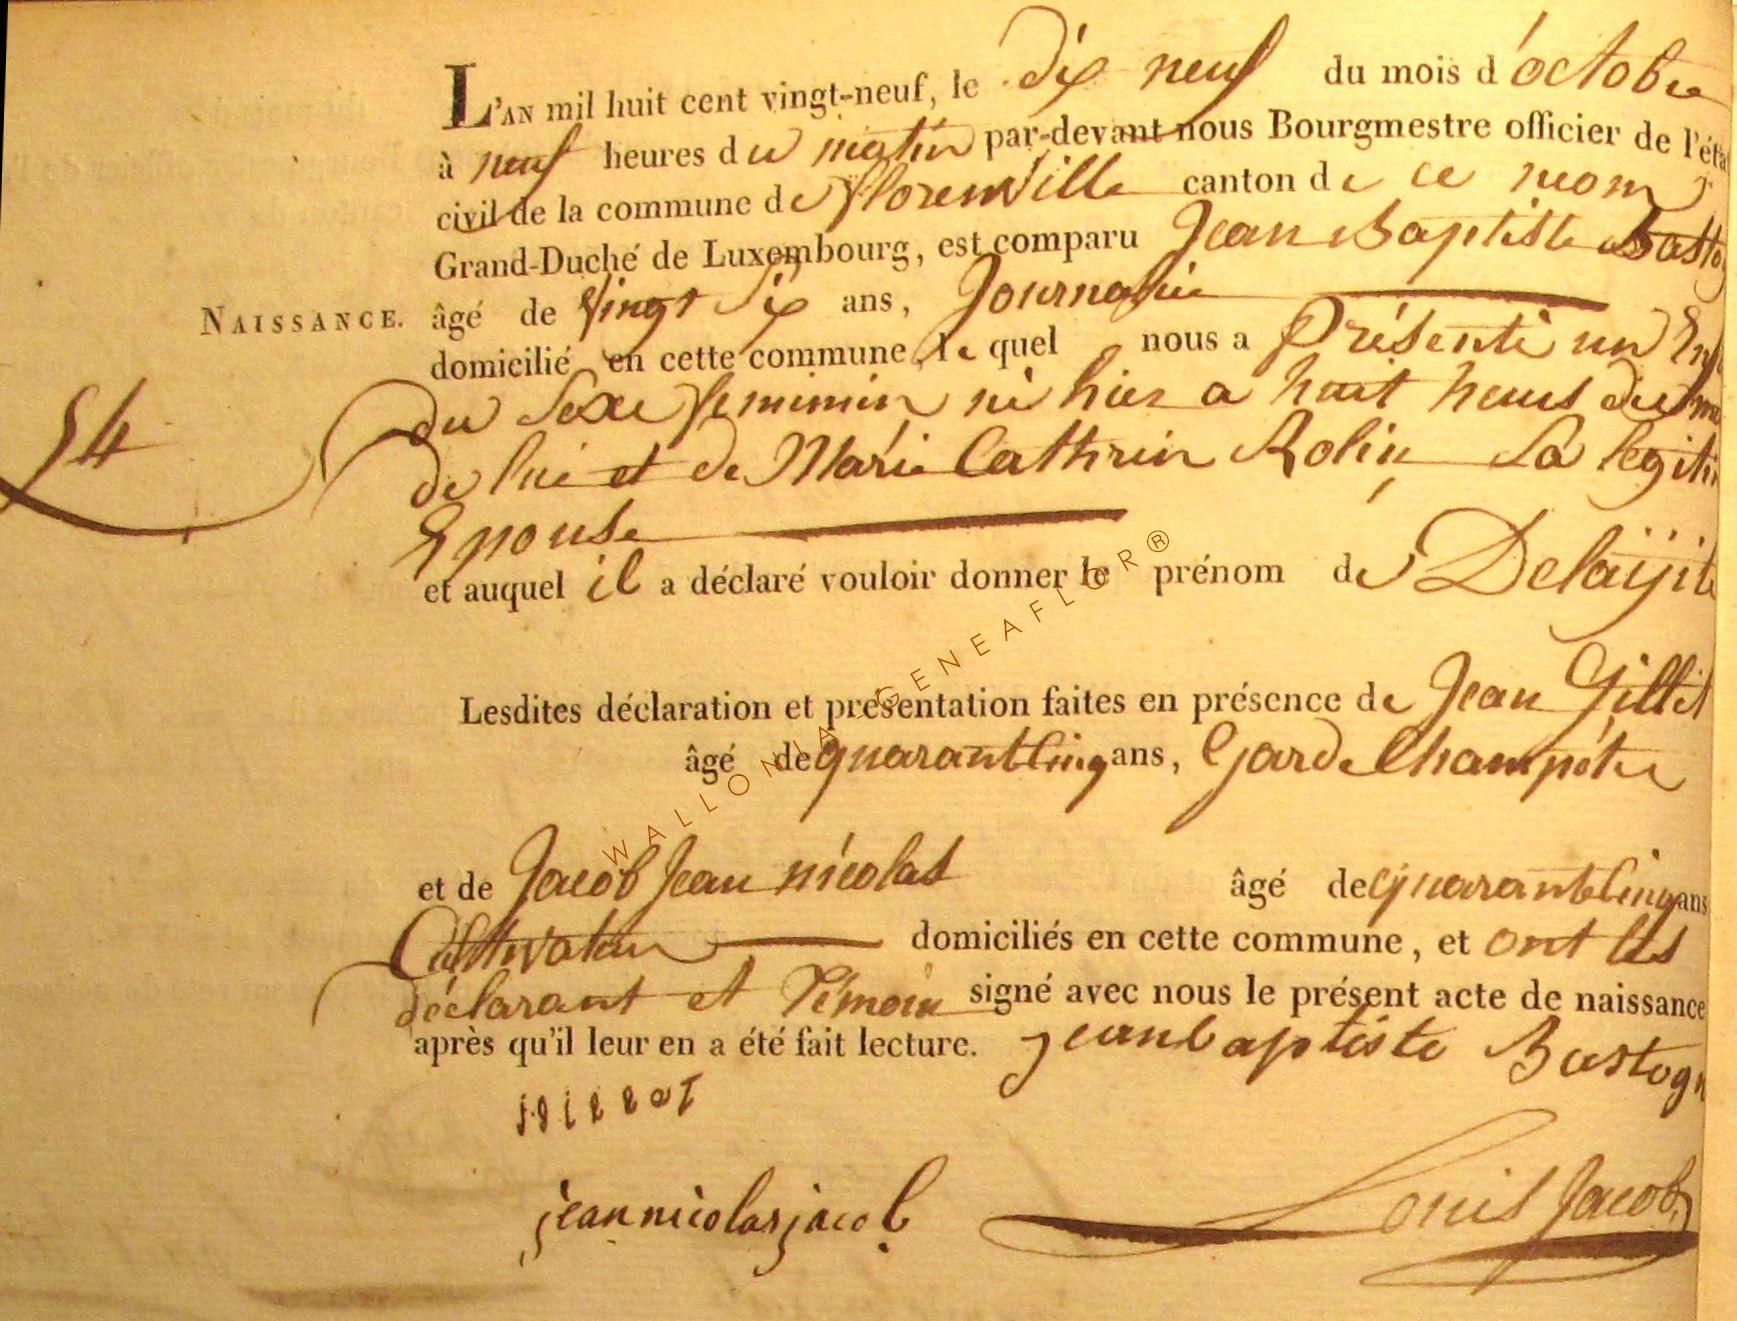 L'AN mil huit cent vingt-neuf, le dix neuf du mois d'octobre
à neuf heures du matin par-devant nous Bourgmestre officier de l'éta
civil de la commune de florenville canton de ce nom
Grand-Duché de Luxembourg, est comparu Jean Baptiste Basto
NAISSANCE. âgé de vingt Six ans, Journalie
domicilié en cette commune, le quel nous a Présenté un Enf
54 du Sexe feminin né hier a huit heurs du ma
de lui et de Marie Cathrin Rolin Sa legiti
Epouse
et auquel il a déclaré vouloir donner le prénom de
Lesdites déclaration et présentation faites en présence de Jean Gillet
âgé de quarantCinq ans, Garde Champétre
et de Jacob Jean nicolas âgé de quarantCinq ans
Cultivateur domiciliés en cette commune, et ont les
déclarant et Témoin signé avec nous le présent acte de naissance
après qu'il leur en a été fait lecture. jeanbaptiste Bastogn
jgillet
jeannicolasjacob Louis Jacob
WALLONIA GENEAFLOR®